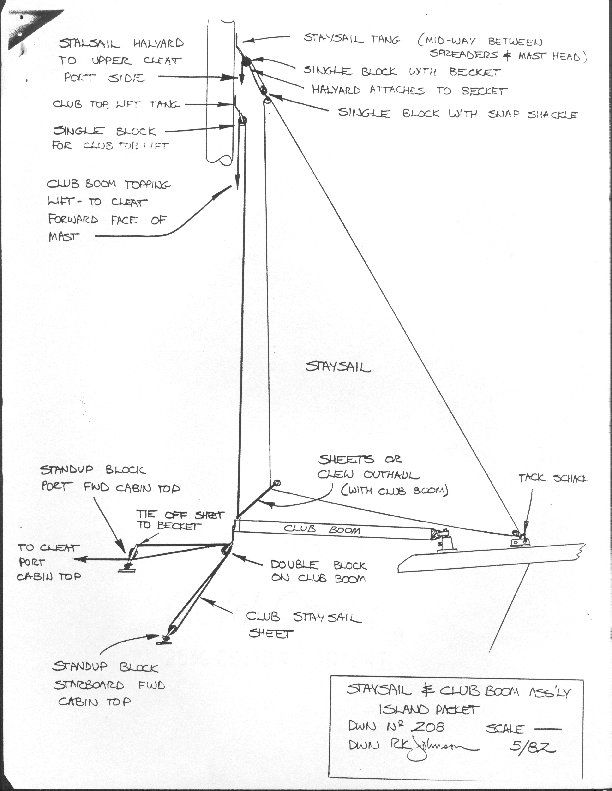 STALSAIL HALYARD
TO UPPER CLEAT
PORT SIDE
CLUB TOP LIFT TANG
SINGLE BLOCK
FOR CLUB TOP LIFT
CLUB BOOM TOPPING
LIFT - TO CLEAT
FORWARD FACE OF
MAST
STAYSAIL TANG (MID-WAY BETWEEN
SPREADERS & MAST HEAD)
SINGLE BLOCK WITH BECKET
HALYARD ATTACHES TO BECKET
SINGLE BLOCK WITH SNAP SHACKLE
STAYSAIL
SHEETS OR
CLEW OUTHAUL
(WITH CLUB BOOM)
TACK SHCKL
STANDUP BLOCK
PORT FWD CABIN TOP
TIE OFF SHEET
TO BECKET
TO CLEAT
PORT
CABIN TOP
CLUB BOOM
DOUBLE BLOCK
ON CLUB BOOM
CLUB STAYSAIL
SHEET
STANDUP BLOCK
STARBOARD FWD
CABIN TOP
STAYSAIL & CLUB BOOM ASS'LY
ISLAND PACKET
DWN Nº 208 SCALE —
DWN RK Johnson 5/82